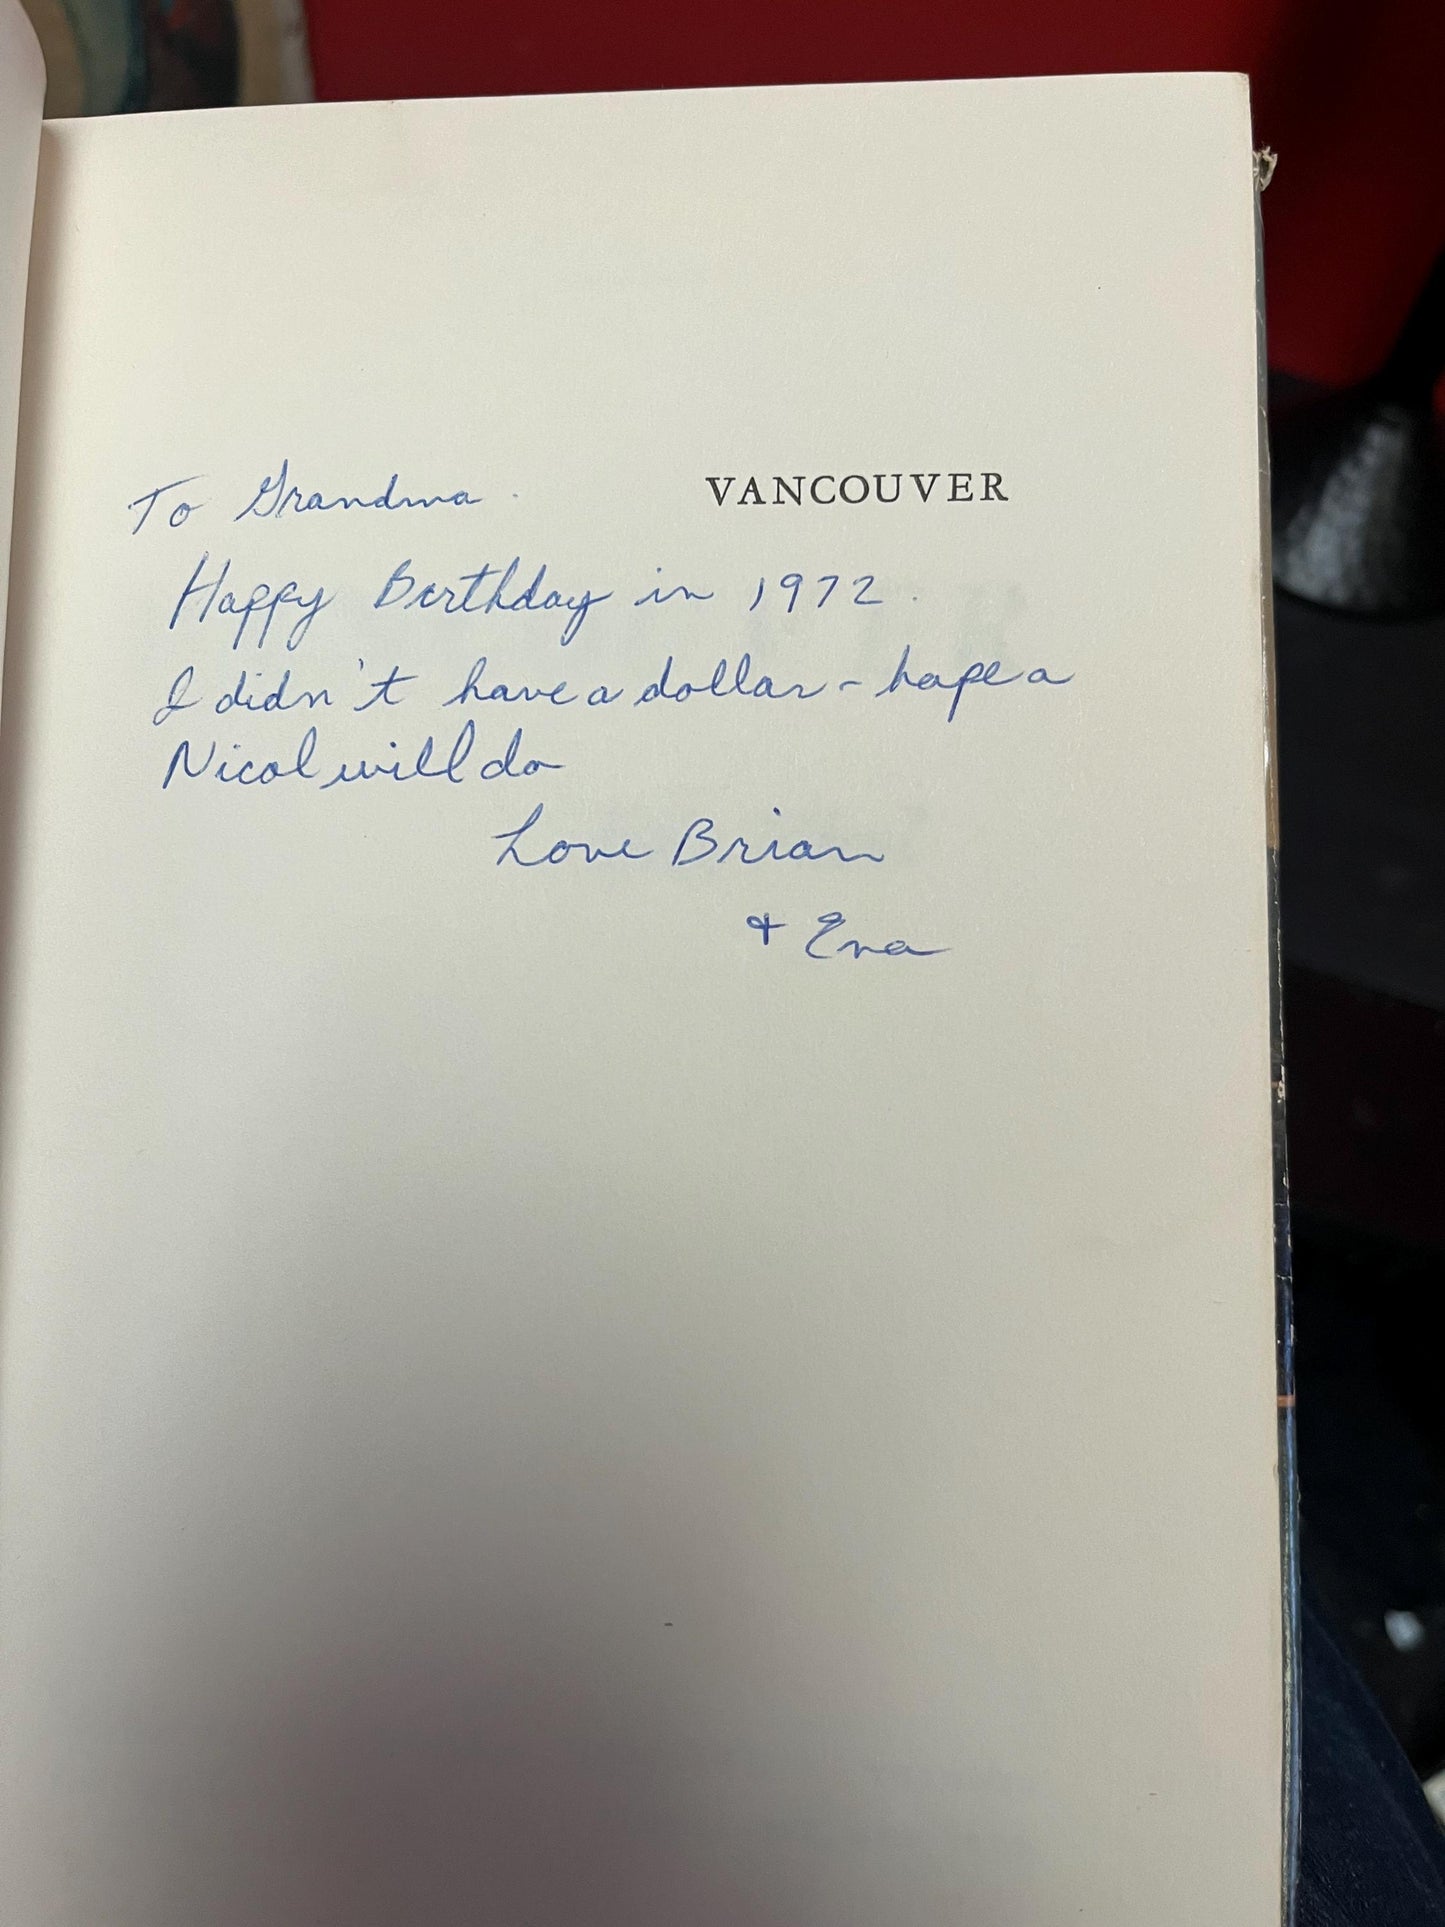 To Grandma. VANCOUVER
Happy Birthday in 1972.
I didn't have a dollar - hope a
Nicol will do
Love Brian
+ Eva